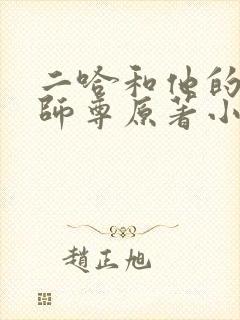 二哈和他的
師尊原著小
趙正旭